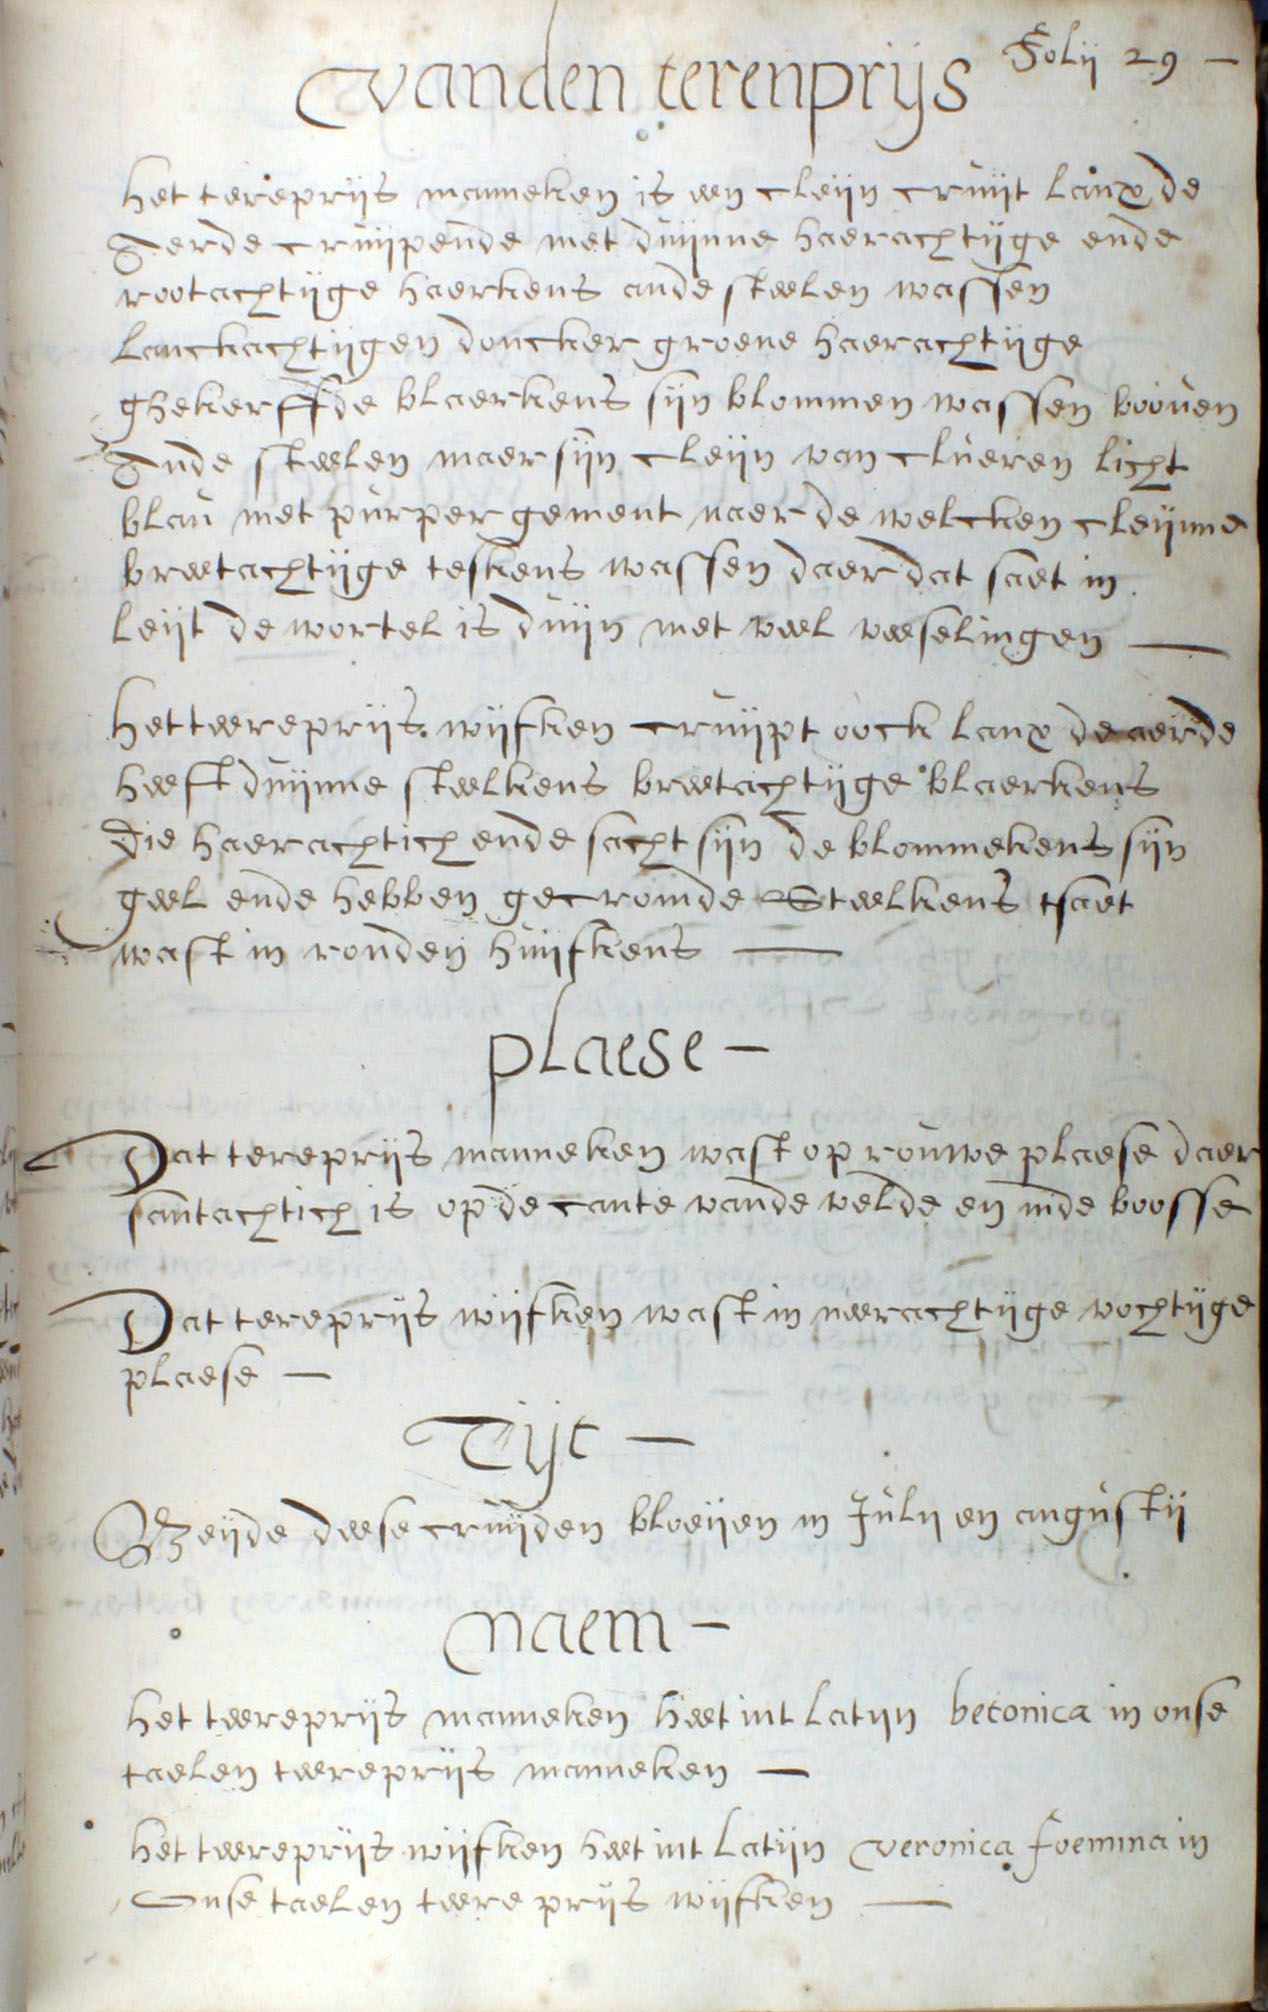 Folij 29 —
vanden terenprijs
het tereprijs manneken is een cleijn cruijt lanx de
Aerde cruijpende met duijnne haerachtijge ende
rootachtijge haerkens ande steelen wassen
lanckachtijgen doncker groene haerachtijge
ghekerffde blaerkens sijn blommen wassen booven
Ande steelen maer sijn cleijn van clueren licht
blau met purper gement naer de welcken cleijnne
breetachtijge teskens wassen daer dat saet in
leijt de wortel is duijn met veel veeselingen —
het teereprijs wijfken cruijpt oock lanx de aerde
heeft duijnne steelkens breetachtijge blaerkens
die haerachtich ende sacht sijn de blommekens sijn
geel ende hebben gecromde Steelkens tsaet
wast in ronden huijfkens —
plaese —
Dat tereprijs manneken wast op rouwe plaese daer
santachtich is op de cante vande velde en inde bosse
Dat tereprijs wijfken wast in neerachtijge vochtijge
plaese —
Tijt —
Beijde deese cruijden bloeijen in Julij en augustij
naem —
het teereprijs manneken heet int latijn betonica in onse
taelen teereprijs manneken —
het teereprijs wijfken heet int latijn veronica foemina in
Onse taelen teere prijs wijfken —